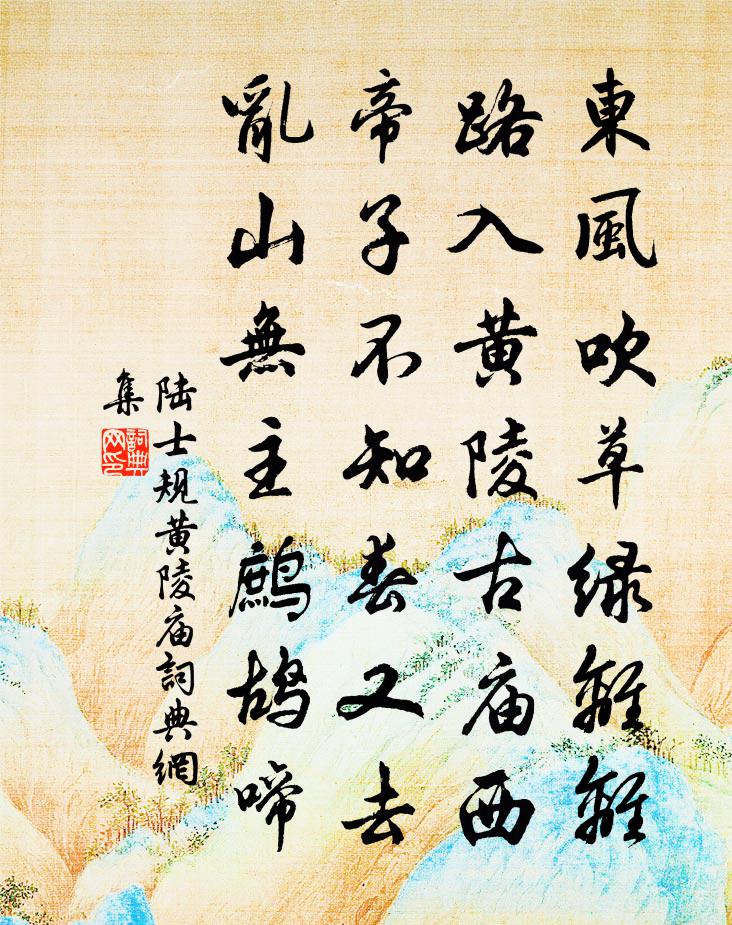 東風吹草绿離離
路入黄陵古庙西
帝子不知春又去
亂山無主鷓鴣啼
陆士规黄陵庙詞典網
集
詞典
网印